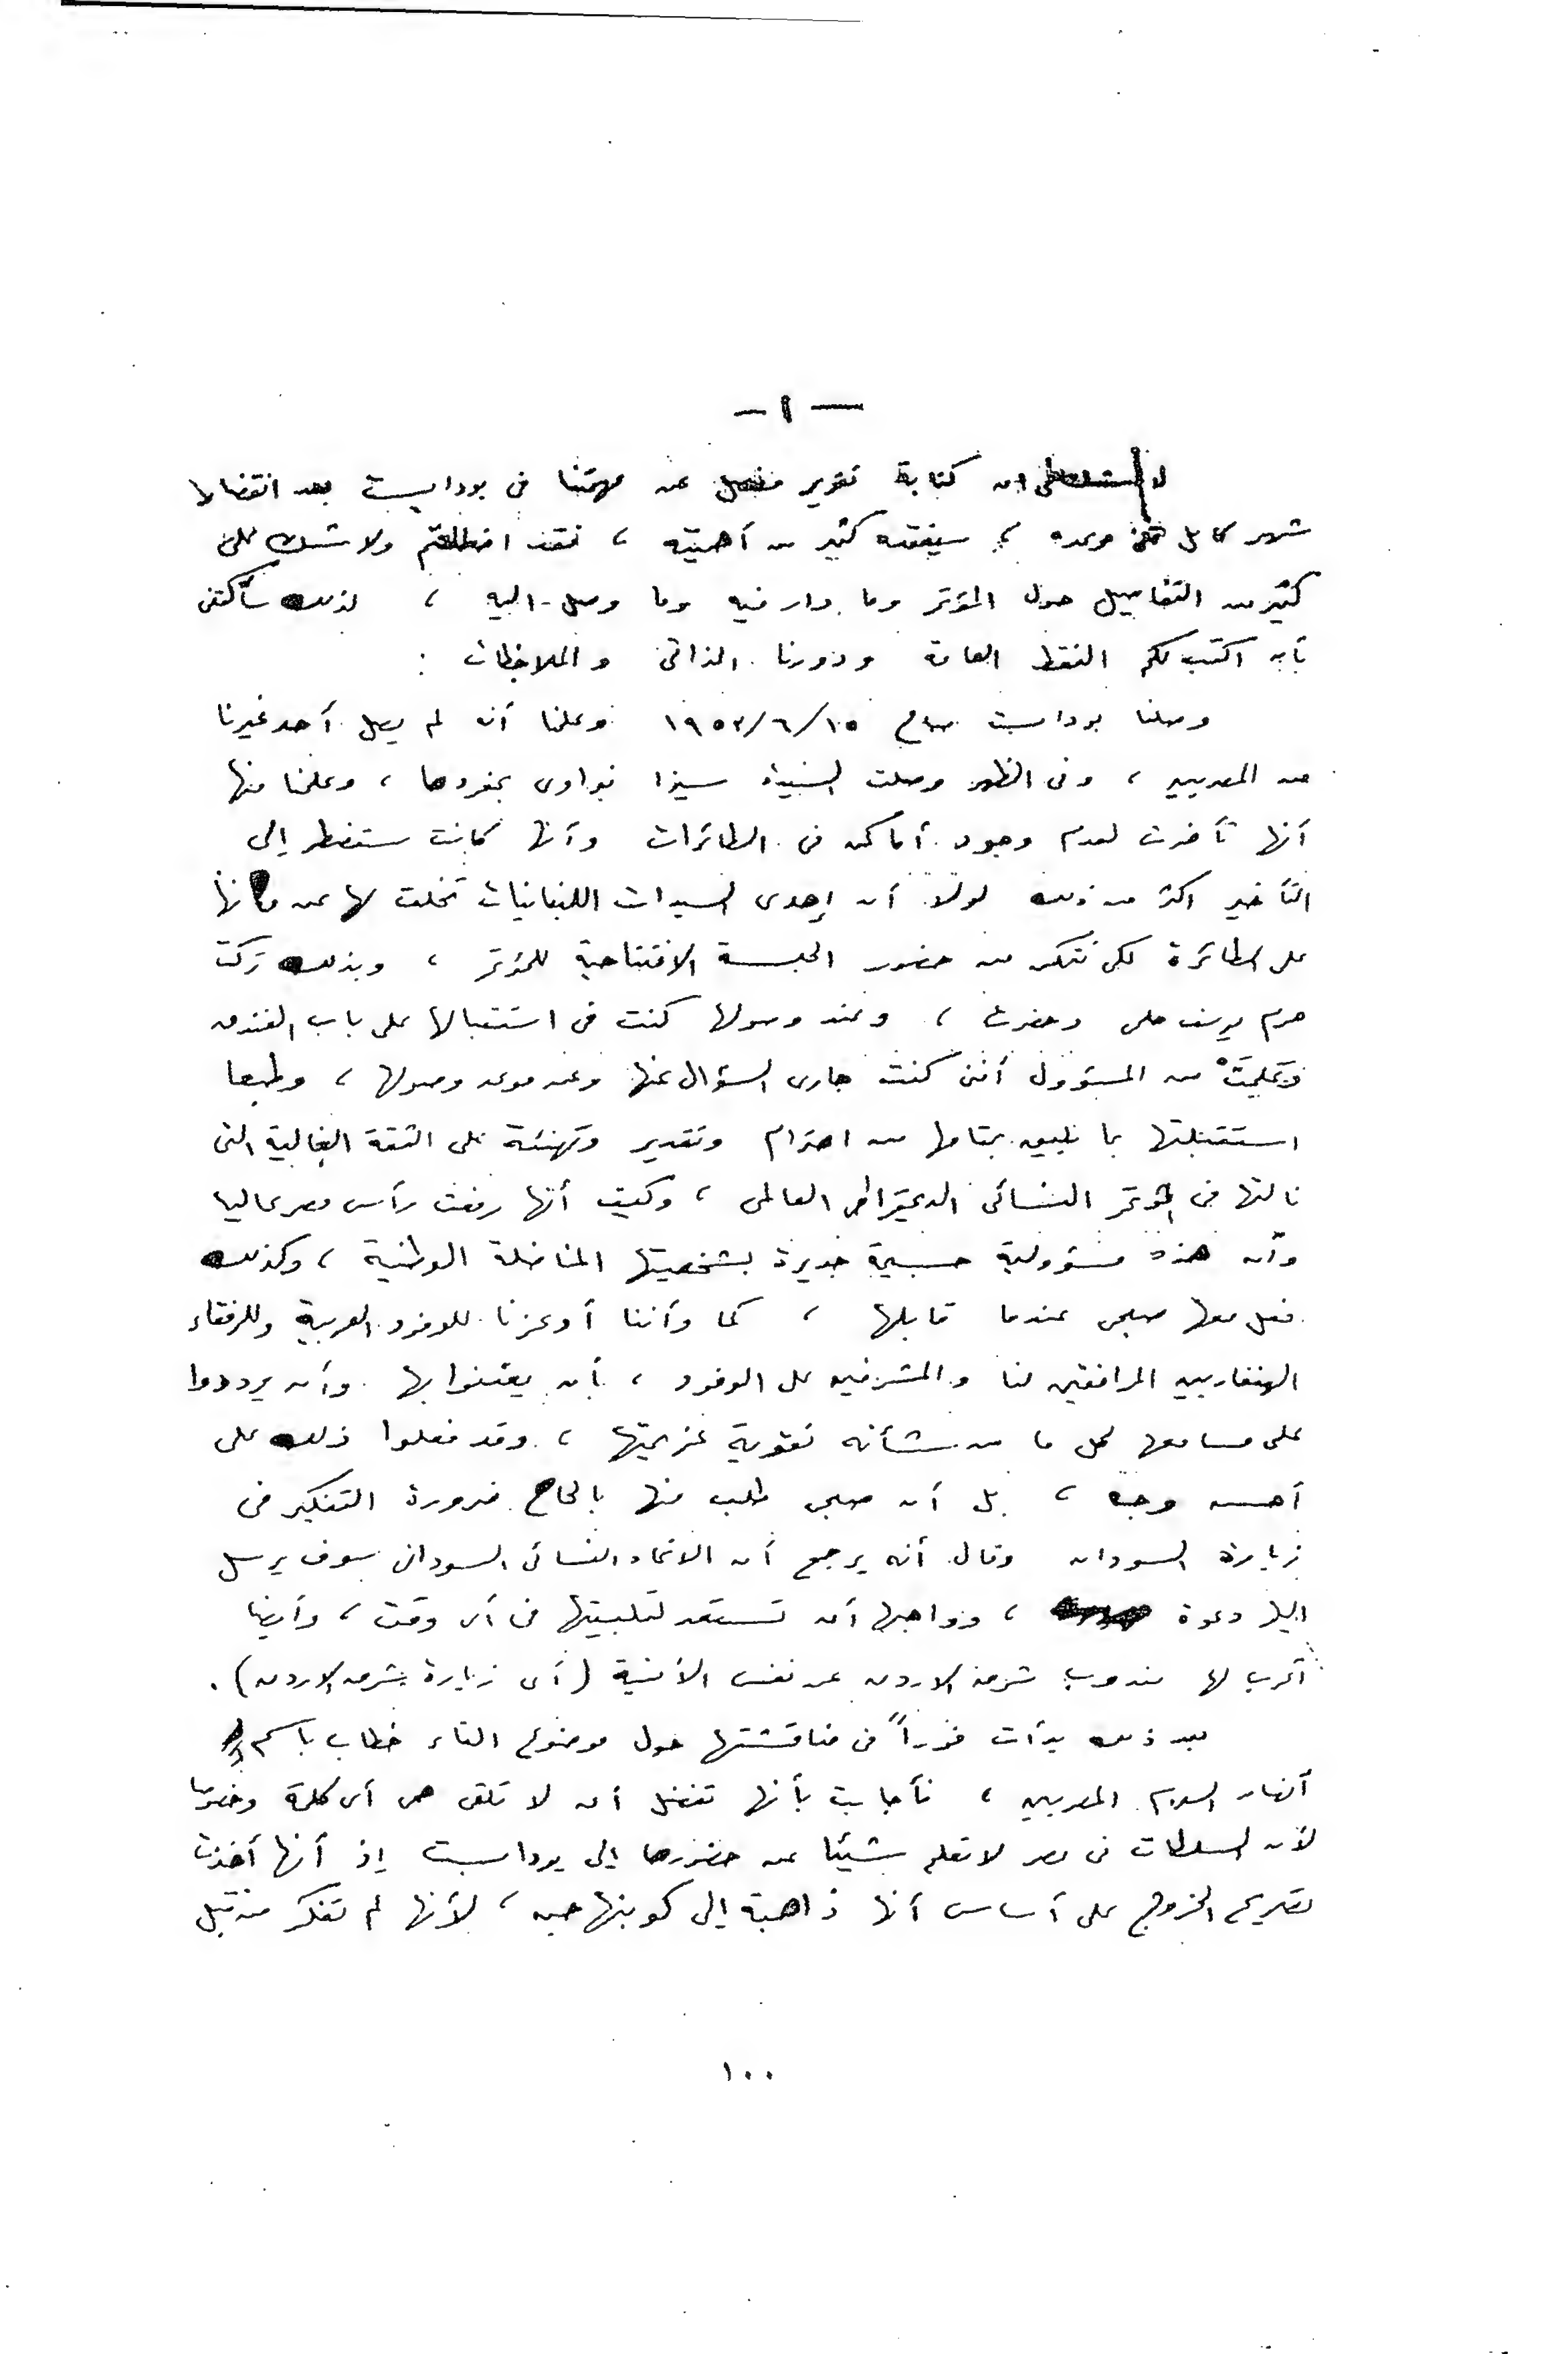 — ١ —
لا ان كتابة تقرير مفصل عن مهمتنا فى بودابست بعد انقضاء
شهر كامل موعده ، سيفقده كثير من أهميته ، فقد اطلعتم ولا شك على
كثير من التفاصيل حول المؤتمر وما دار فيه وما وصل اليه ، لذلك سأكتفى
بأن اكتب لكم النقط العامة ودورنا الذاتى والملاحظات :
وصلنا بودابست صباح ١٩٥٣/٦/١٥ وعلمنا أنه لم يصل أحد غيرنا
من المصريين ، وفى الظهر وصلت السيدة سيزا نبراوى بمفردها ، وعلمنا منها
أنها تأخرت لعدم وجود أماكن فى الطائرات وأنها كانت ستضطر إلى
التأخير اكثر من ذلك لولا أن إحدى السيدات اللبنانيات تخلت لها عن مكانها
على الطائرة لكى تتمكن من حضور الجلسة الافتتاحية للمؤتمر ، وبذلك تركت
حرم يوسف حلمى وحضرت ، وعند وصولها كنت فى استقبالها على باب الفندق
وَعَلِمَتْ من المسؤول أننى كنت جارى السؤال عنها وعن موعد وصولها ، وطبعا
استقبلتها بما يليق بمقامها من احترام وتقدير وتهنئة على الثقة الغالية التى
نالتها فى المؤتمر النسائى الديمقراطى العالمى ، وكيف أنها رفعت رأس مصر عاليا
وأن هذه مسؤولية جسيمة جديرة بشخصيتها المناضلة الوطنية ، وكذلك
فعل معها صبحى عندما قابلها ، كما وأننا أوعزنا للوفود العربية وللرفقاء
الهنغاريين المرافقين لنا والمشرفين على الوفود ، بأن يعتنوا بها وأن يرددوا
على مسامعها كل ما من شأنه تقوية عزيمتها ، وقد فعلوا ذلك على
أحسن وجه ، بل أن صبحى طلب منها بالحاح ضرورة التفكير فى
زيارة السودان وقال أنه يرجح أن الاتحاد النسائى السودانى سوف يرسل
اليها دعوة ، وواجبها أن تستعد لتلبيتها فى أى وقت ، وأيضا
أعرب لها مندوب شرق الاردن عن نفس الأمنية (أى زيارة شرق الاردن) .
بعد ذلك بدأت فوراً فى مناقشتها حول موضوع القاء خطاب باسم
أنصار السلام المصريين ، فأجابت بأنها تفضل أن لا تلقى هى أى كلمة وخصوصا
لأن السلطات فى مصر لا تعلم شيئا عن حضورها إلى بودابست إذ أنها أخذت
تصريح الخروج على أساس أنها ذاهبة إلى كوبنهاجن ، لأنها لم تفكر من قبل
١٠٠